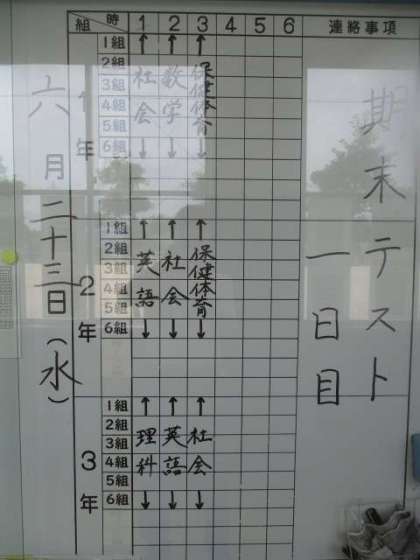 組 時 1 2 3 4 5 6 連絡事項
六月二十三日(水)
1年
1組
2組
3組
4組
5組
6組
社会
数学
保健体育
2年
1組
2組
3組
4組
5組
6組
英語
社会
保健体育
3年
1組
2組
3組
4組
5組
6組
理科
英語
社会
期末テスト
一日目